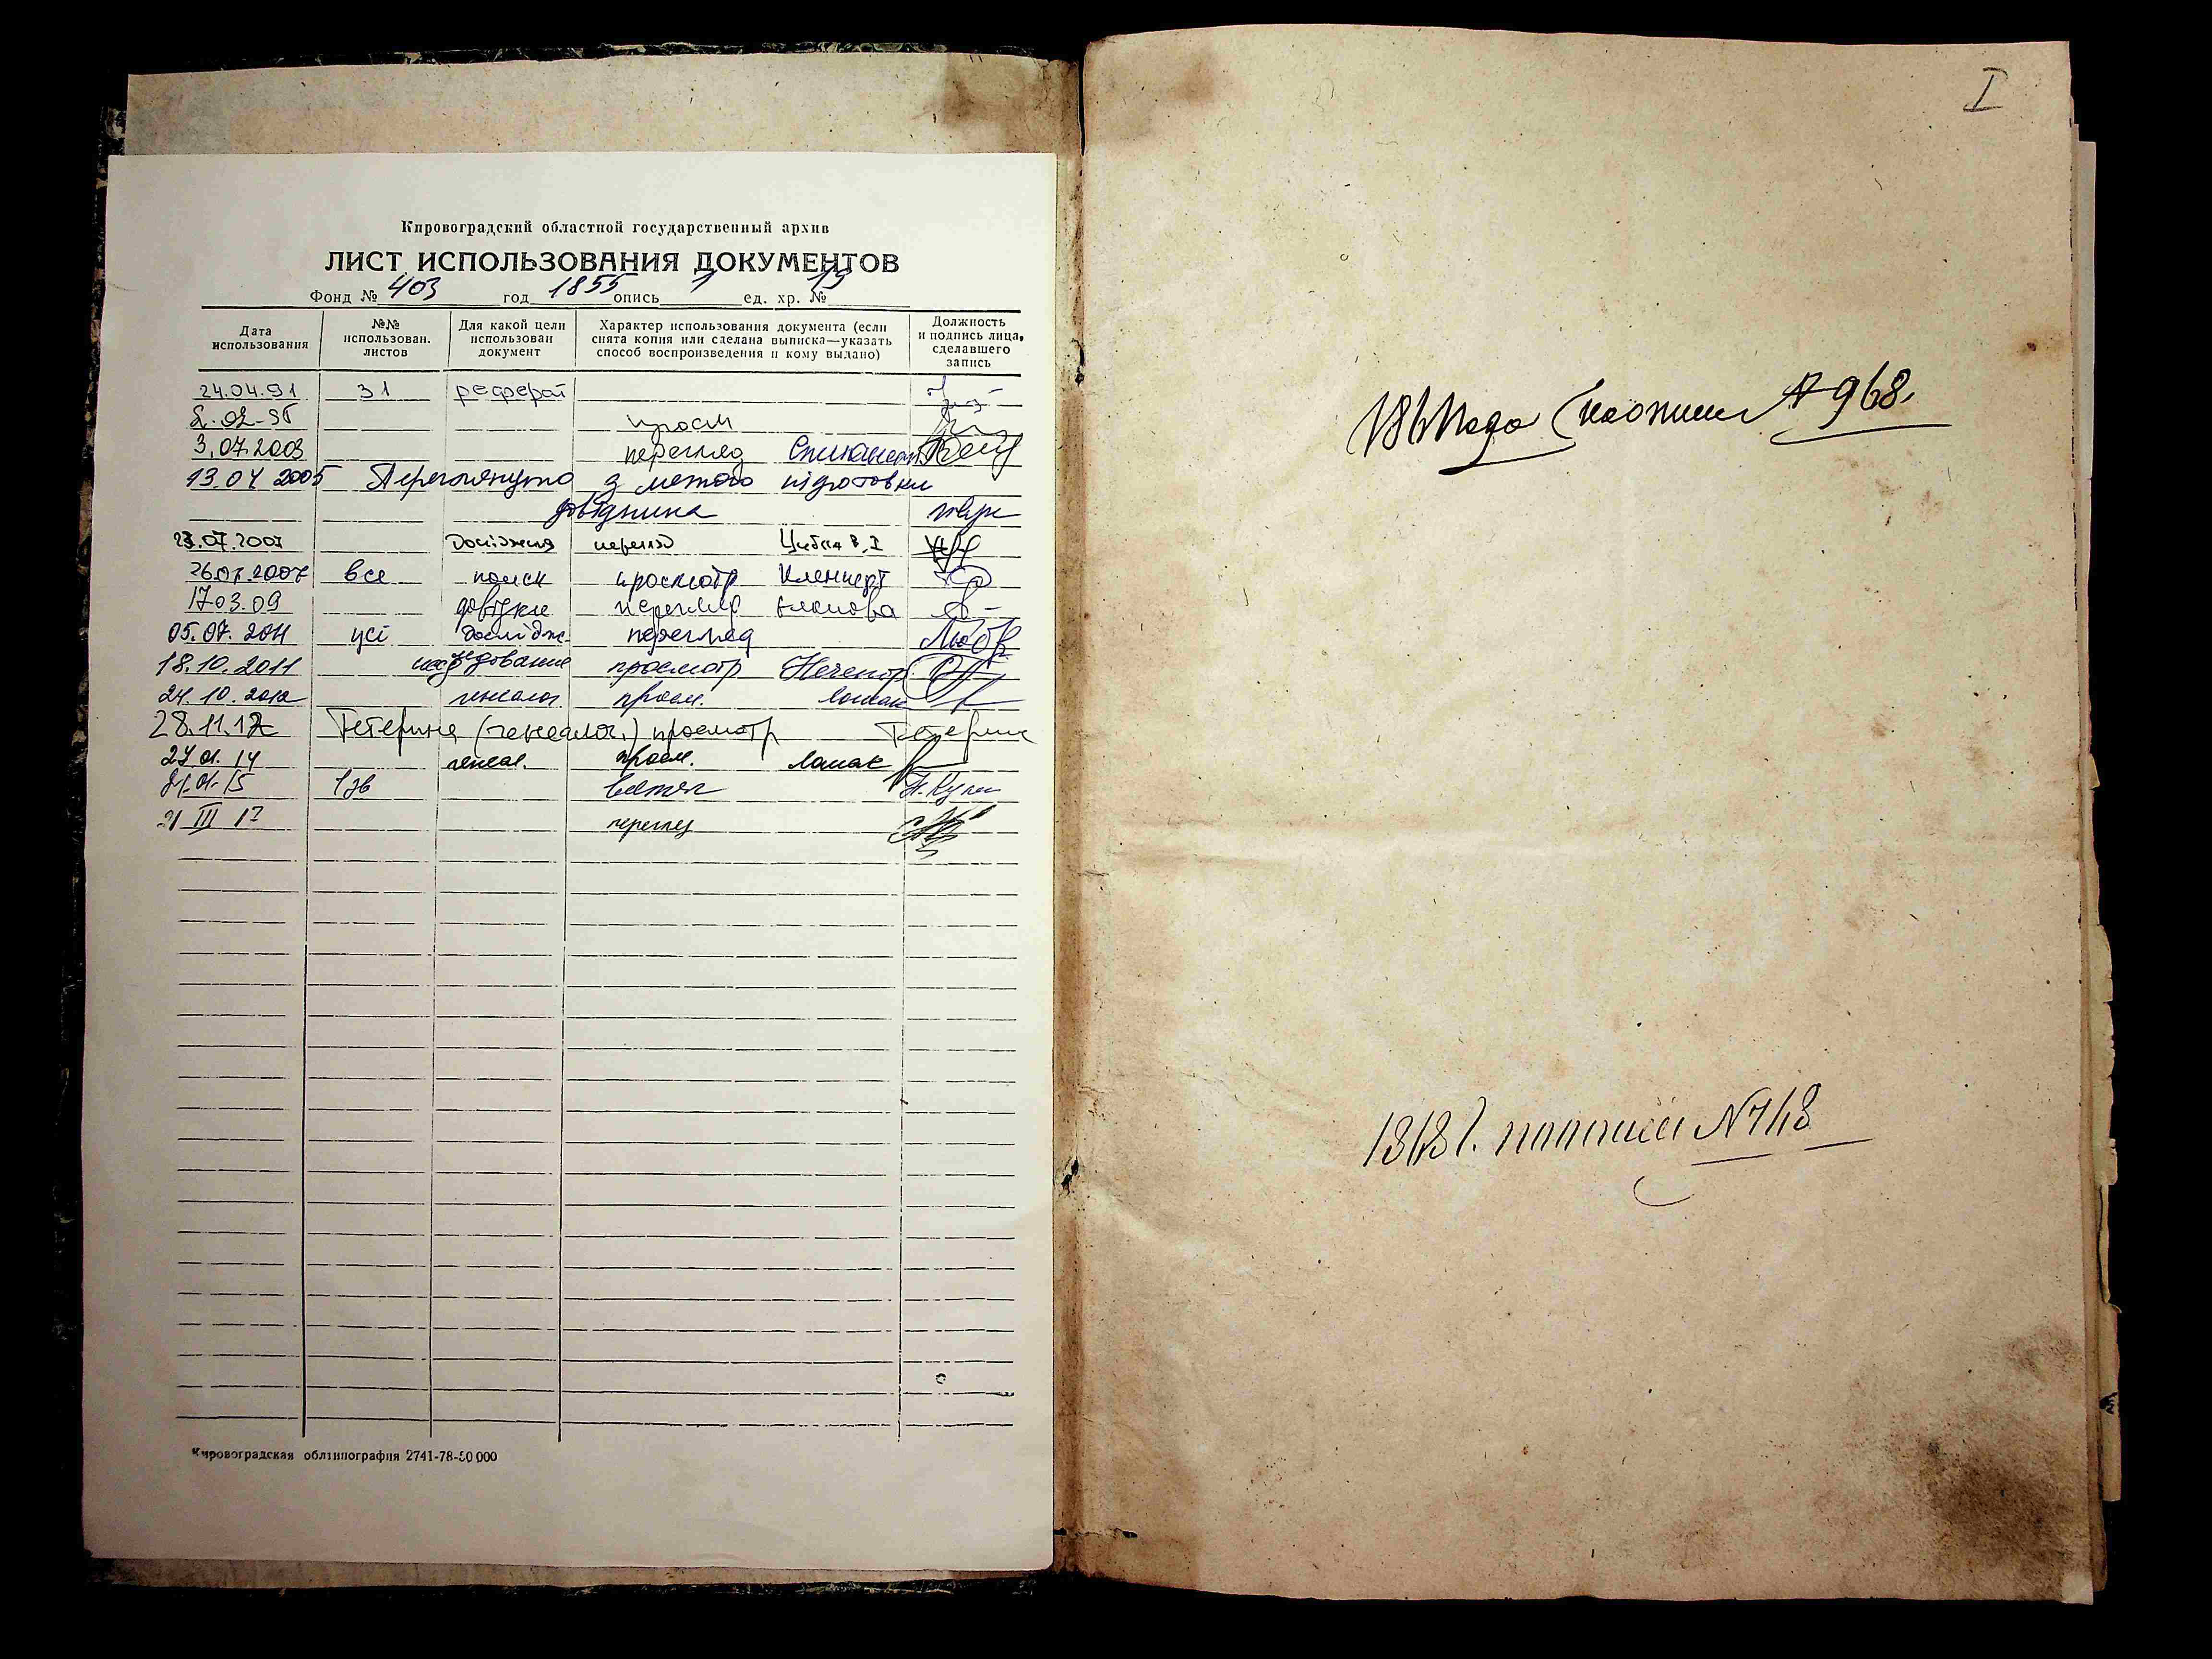 Кировоградский областной государственный архив
ЛИСТ ИСПОЛЬЗОВАНИЯ ДОКУМЕНТОВ
Фонд № 403 год 1855 опись 1 ед. хр. № 19
Дата использования
№№ использован. листов
Для какой цели использован документ
Характер использования документа (если снята копия или сделана выписка—указать способ воспроизведения и кому выдано)
Должность и подпись лица, сделавшего запись
24.04.91 31 реферат
просм
3.07.2003 перегляд
13.04 2005 Переглянуто з метою підготовки
довідника
23.07.2007 перегляд
26.07.2007 все поиск просмотр
17.03.09 довідки перегляд
05.07.2011 усі дослідж. перегляд
18.10.2011 исследование просмотр
24.10.2012 генеалог. просм. Ломак
28.11.12 Тетерина (генеалог.) просмотр Тетерин
27.01.14 генеал. просм. Ломак
21.01.15
21 III 17 перегляд
Кировоградская облтипография 2741-78-50 000
I
года № 968.
№ 748